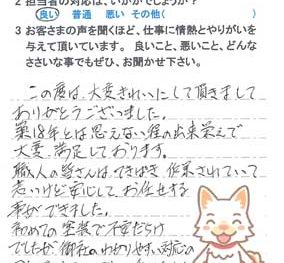 2 担当者の対応は、いかがでしょうか？
良い 普通 悪い その他( )
3 お客さまの声を聞くほど、仕事に情熱とやりがいを
与えて頂いています。 良いこと、悪いこと、どんな
ささいな事でもぜひ、お聞かせ下さい。
この度は、大変きれいにして頂きまして
ありがとうございました。
築18年とは思えない程の出来栄えで
大変、満足しております。
職人の皆さんは、てきぱき、作業されていって
安心して、お任せする
事ができました。
初めての塗装で不安だらけ
でしたが、御社のわかりやすい対応の